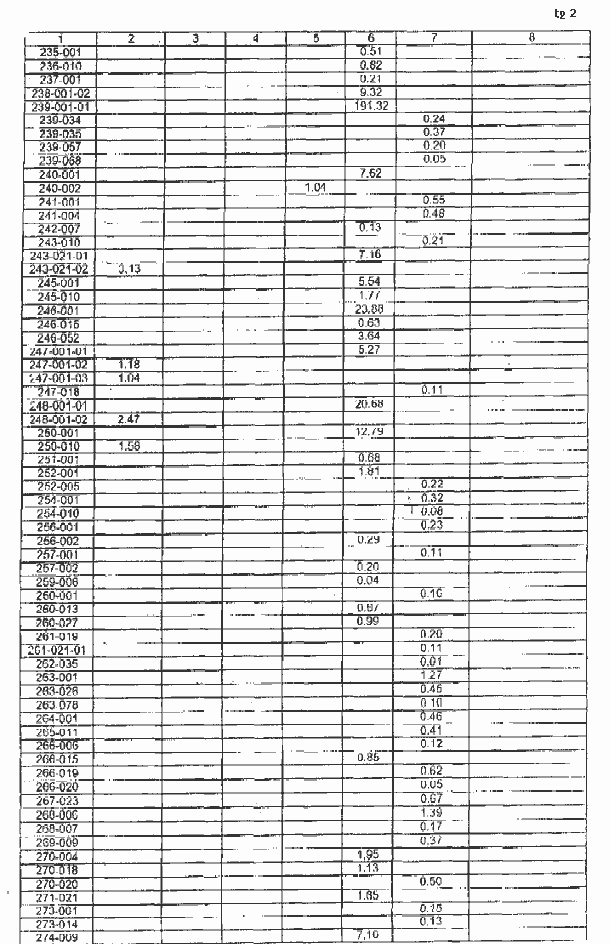 tg 2
1 2 3 4 5 6 7 8
235-001 0.51
236-010 0.62
237-001 0.21
238-001-02 9.32
239-001-01 191.32
239-034 0.24
239-035 0.37
239-057 0.20
239-068 0.05
240-001 7.62
240-002 1.04
241-001 0.55
241-004 0.48
242-007 0.13
243-010 0.21
243-021-01 7.16
243-021-02 0.13
245-001 5.54
245-010 1.77
246-001
246-015 0.63
246-052 3.64
247-001-01 5.27
247-001-02 1.18
247-001-03 1.04
247-018 0.11
248-001-01 20.68
248-001-02 2.47
250-001 12.79
250-010 1.56
251-001 0.68
252-001 1.81
252-005 0.22
254-001 0.32
254-010 0.08
256-001 0.23
256-002 0.29
257-001 0.11
257-002 0.20
259-006 0.04
260-001 0.16
260-013 0.67
260-027 0.99
261-019 0.20
261-021-01 0.11
262-035 0.01
263-001 1.27
263-028 0.45
263.078 0.10
264-001 0.46
265-011 0.41
266-006 0.12
266-015 0.85
266-019 0.62
266-020 0.05
267-023 0.67
268-006 1.39
268-007 0.17
269-009 0.37
270-004 1.95
270-018 1.13
270-020 0.50
271-021 1.65
273-001 0.15
273-014 0.13
274-009 7.10